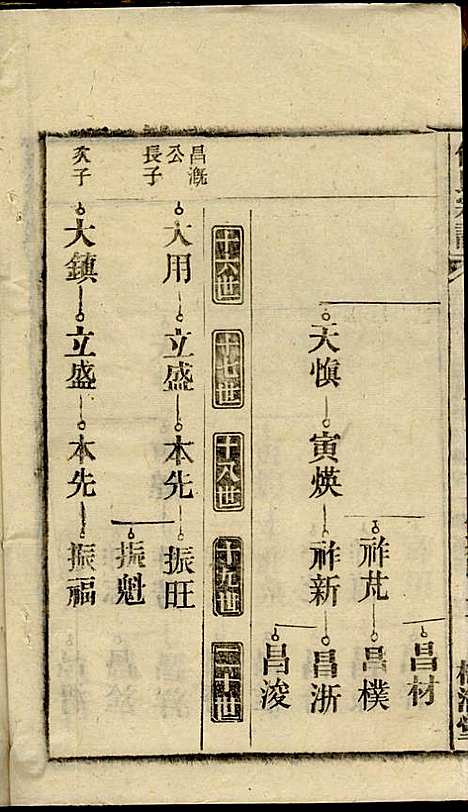 昌材
祚芃 昌樸
天慎 寅煐 祚新 昌浙
昌浚
十六世 十七世 十八世 十九世 二十世
昌漑公長子
大用 立盛 本先 振旺
振魁
次子
大鎮 立盛 本先 振福